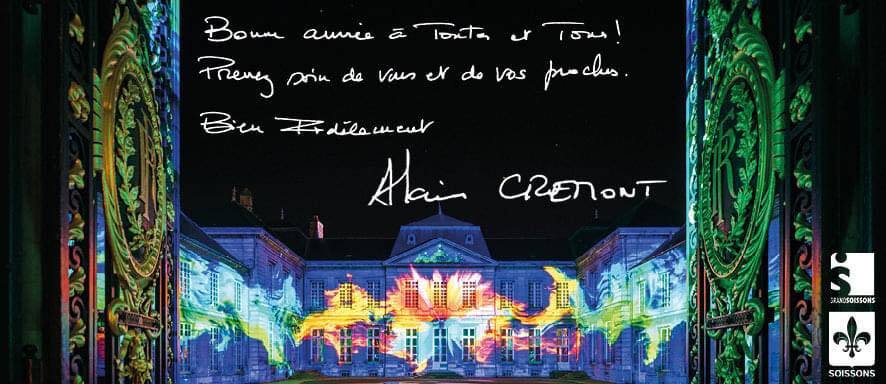 Bonne année à Toutes et Tous !
Prenez soin de vous et de vos proches.
Bien Fidèlement
Alain CREMONT
GRANDSOISSONS
SOISSONS